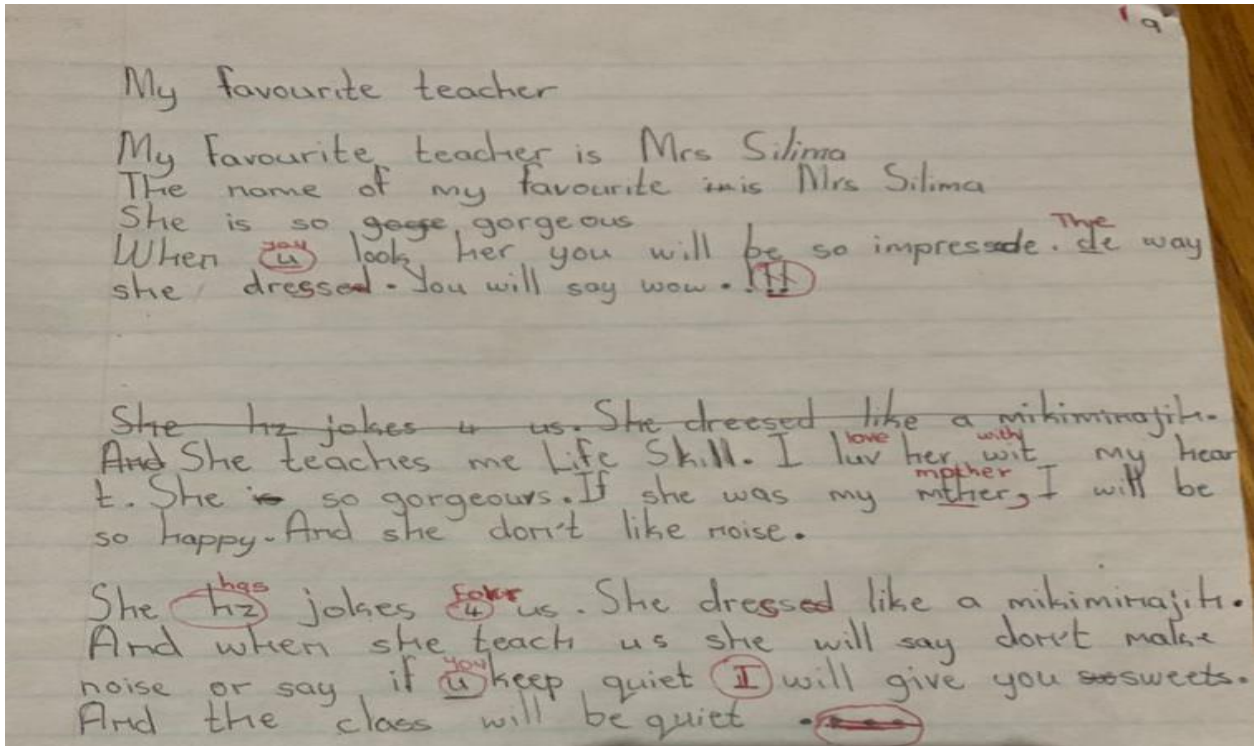 9
My favourite teacher
My favourite teacher is Mrs Silima
The name of my favourite is Mrs Silima
She is so gorgeous
you Thye
When u look her you will be so impressde. de way
she dressed. You will say wow. !!!
She hz jokes 4 us. She dreesed like a mikiminajih.
love with
And She teaches me Life Skill. I luv her wit my hear
mother
t. She is so gorgeours. If she was my mther, I will be
so happy. And she don't like noise.
has
She hz jokes 4 us. She dressed like a mikiminajih.
And when she teach us she will say don't make
you
noise or say if u keep quiet I will give you sweets.
And the class will be quiet .